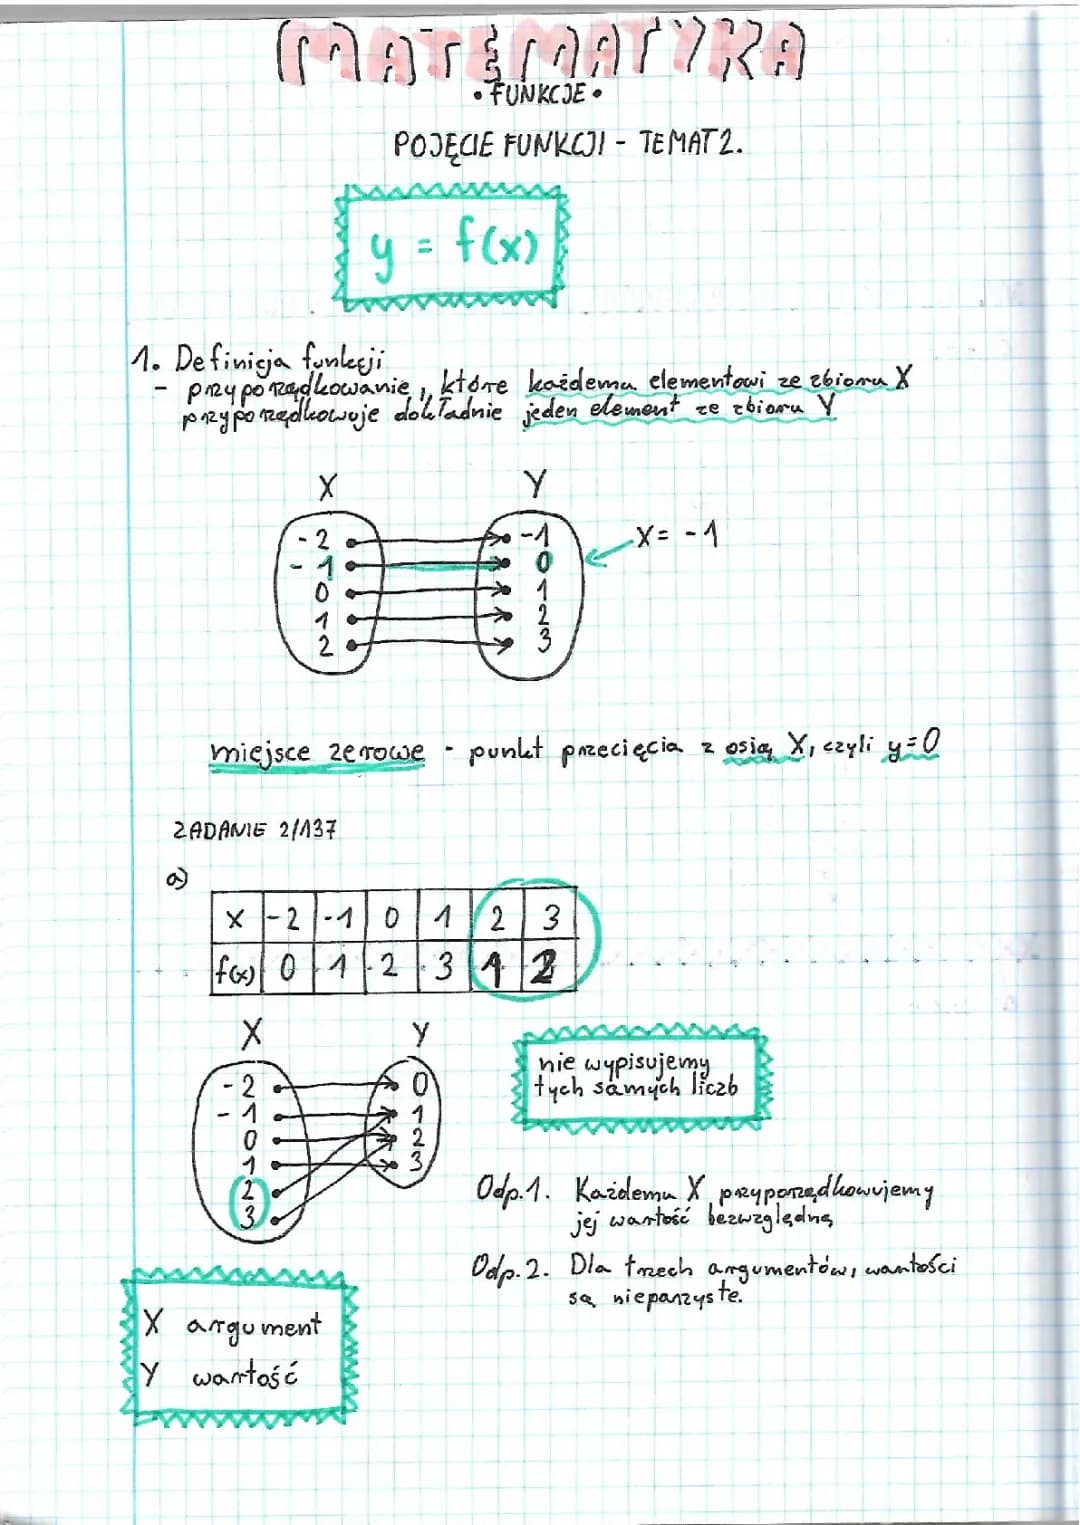 MATEMATYKA
• FUNKCJE •
POJĘCIE FUNKCJI - TEMAT 2.
y = f(x)
1. Definicja funkcji
- przyporządkowanie, które każdemu elementowi ze zbioru X
przyporządkowuje dokładnie jeden element ze zbioru Y
X Y
-2 -1 X = -1
-1 0
0 1
1 2
2 3
miejsce zerowe - punkt przecięcia z osią X, czyli y=0
ZADANIE 2/137
a)
x -2 -1 0 1 2 3
f(x) 0 1 2 3 1 2
X Y
-2 0
-1 1
0 2
1 3
2
3
nie wypisujemy
tych samych liczb
Odp.1. Każdemu X przyporządkowujemy
jej wartość bezwzględną
Odp.2. Dla trzech argumentów, wartości
są nieparzyste.
X argument
Y wartość